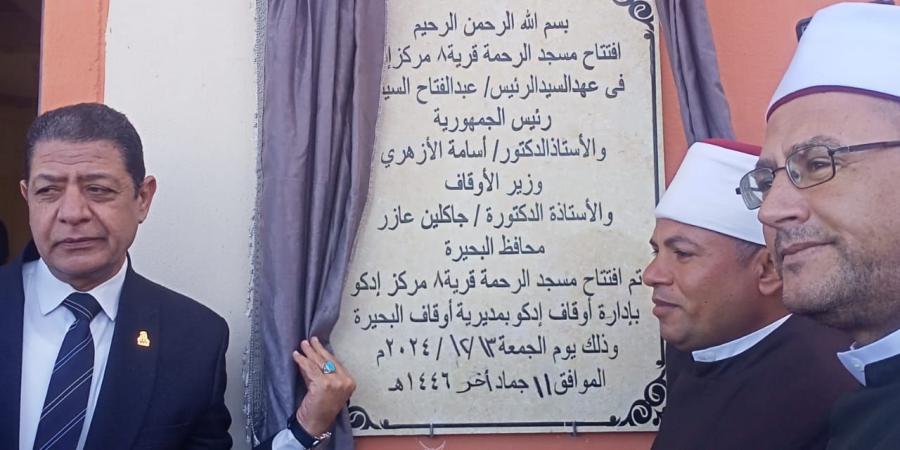 بسم الله الرحمن الرحيم
افتتاح مسجد الرحمة قرية٨ مركز
فى عهدالسيدالرئيس/ عبدالفتاح
رئيس الجمهورية
والأستاذالدكتور/ أسامة الأزهري
وزير الأوقاف
والأستاذة الدكتورة / جاكلين عازر
محافظ البحيرة
تم افتتاح مسجد الرحمة قرية٨ مركز إدكو
بإدارة أوقاف إدكو بمديرية أوقاف البحيرة
وذلك يوم الجمعة ١٣/ ١٢/ ٢٠٢٤م
الموافق ١١ جماد أخر ١٤٤٦هـ